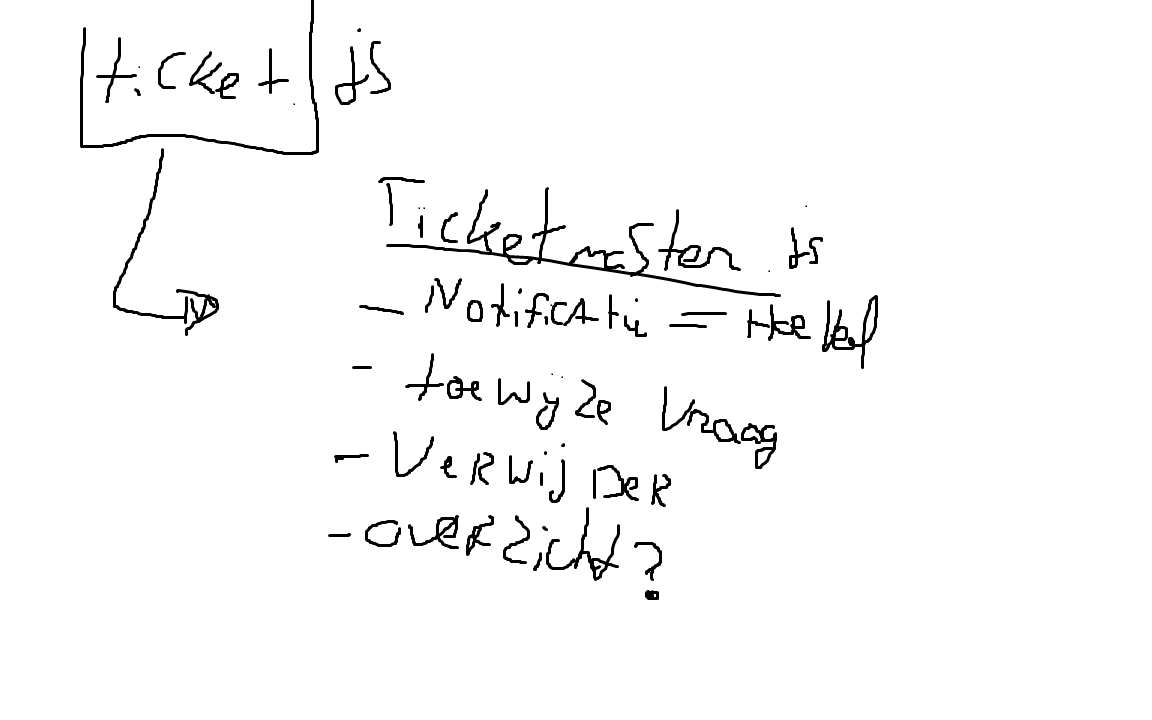 ticket js
Ticketmaster js
- Notificatie =
- toewijze vraag
- VERWIJDER
- OVERzicht?